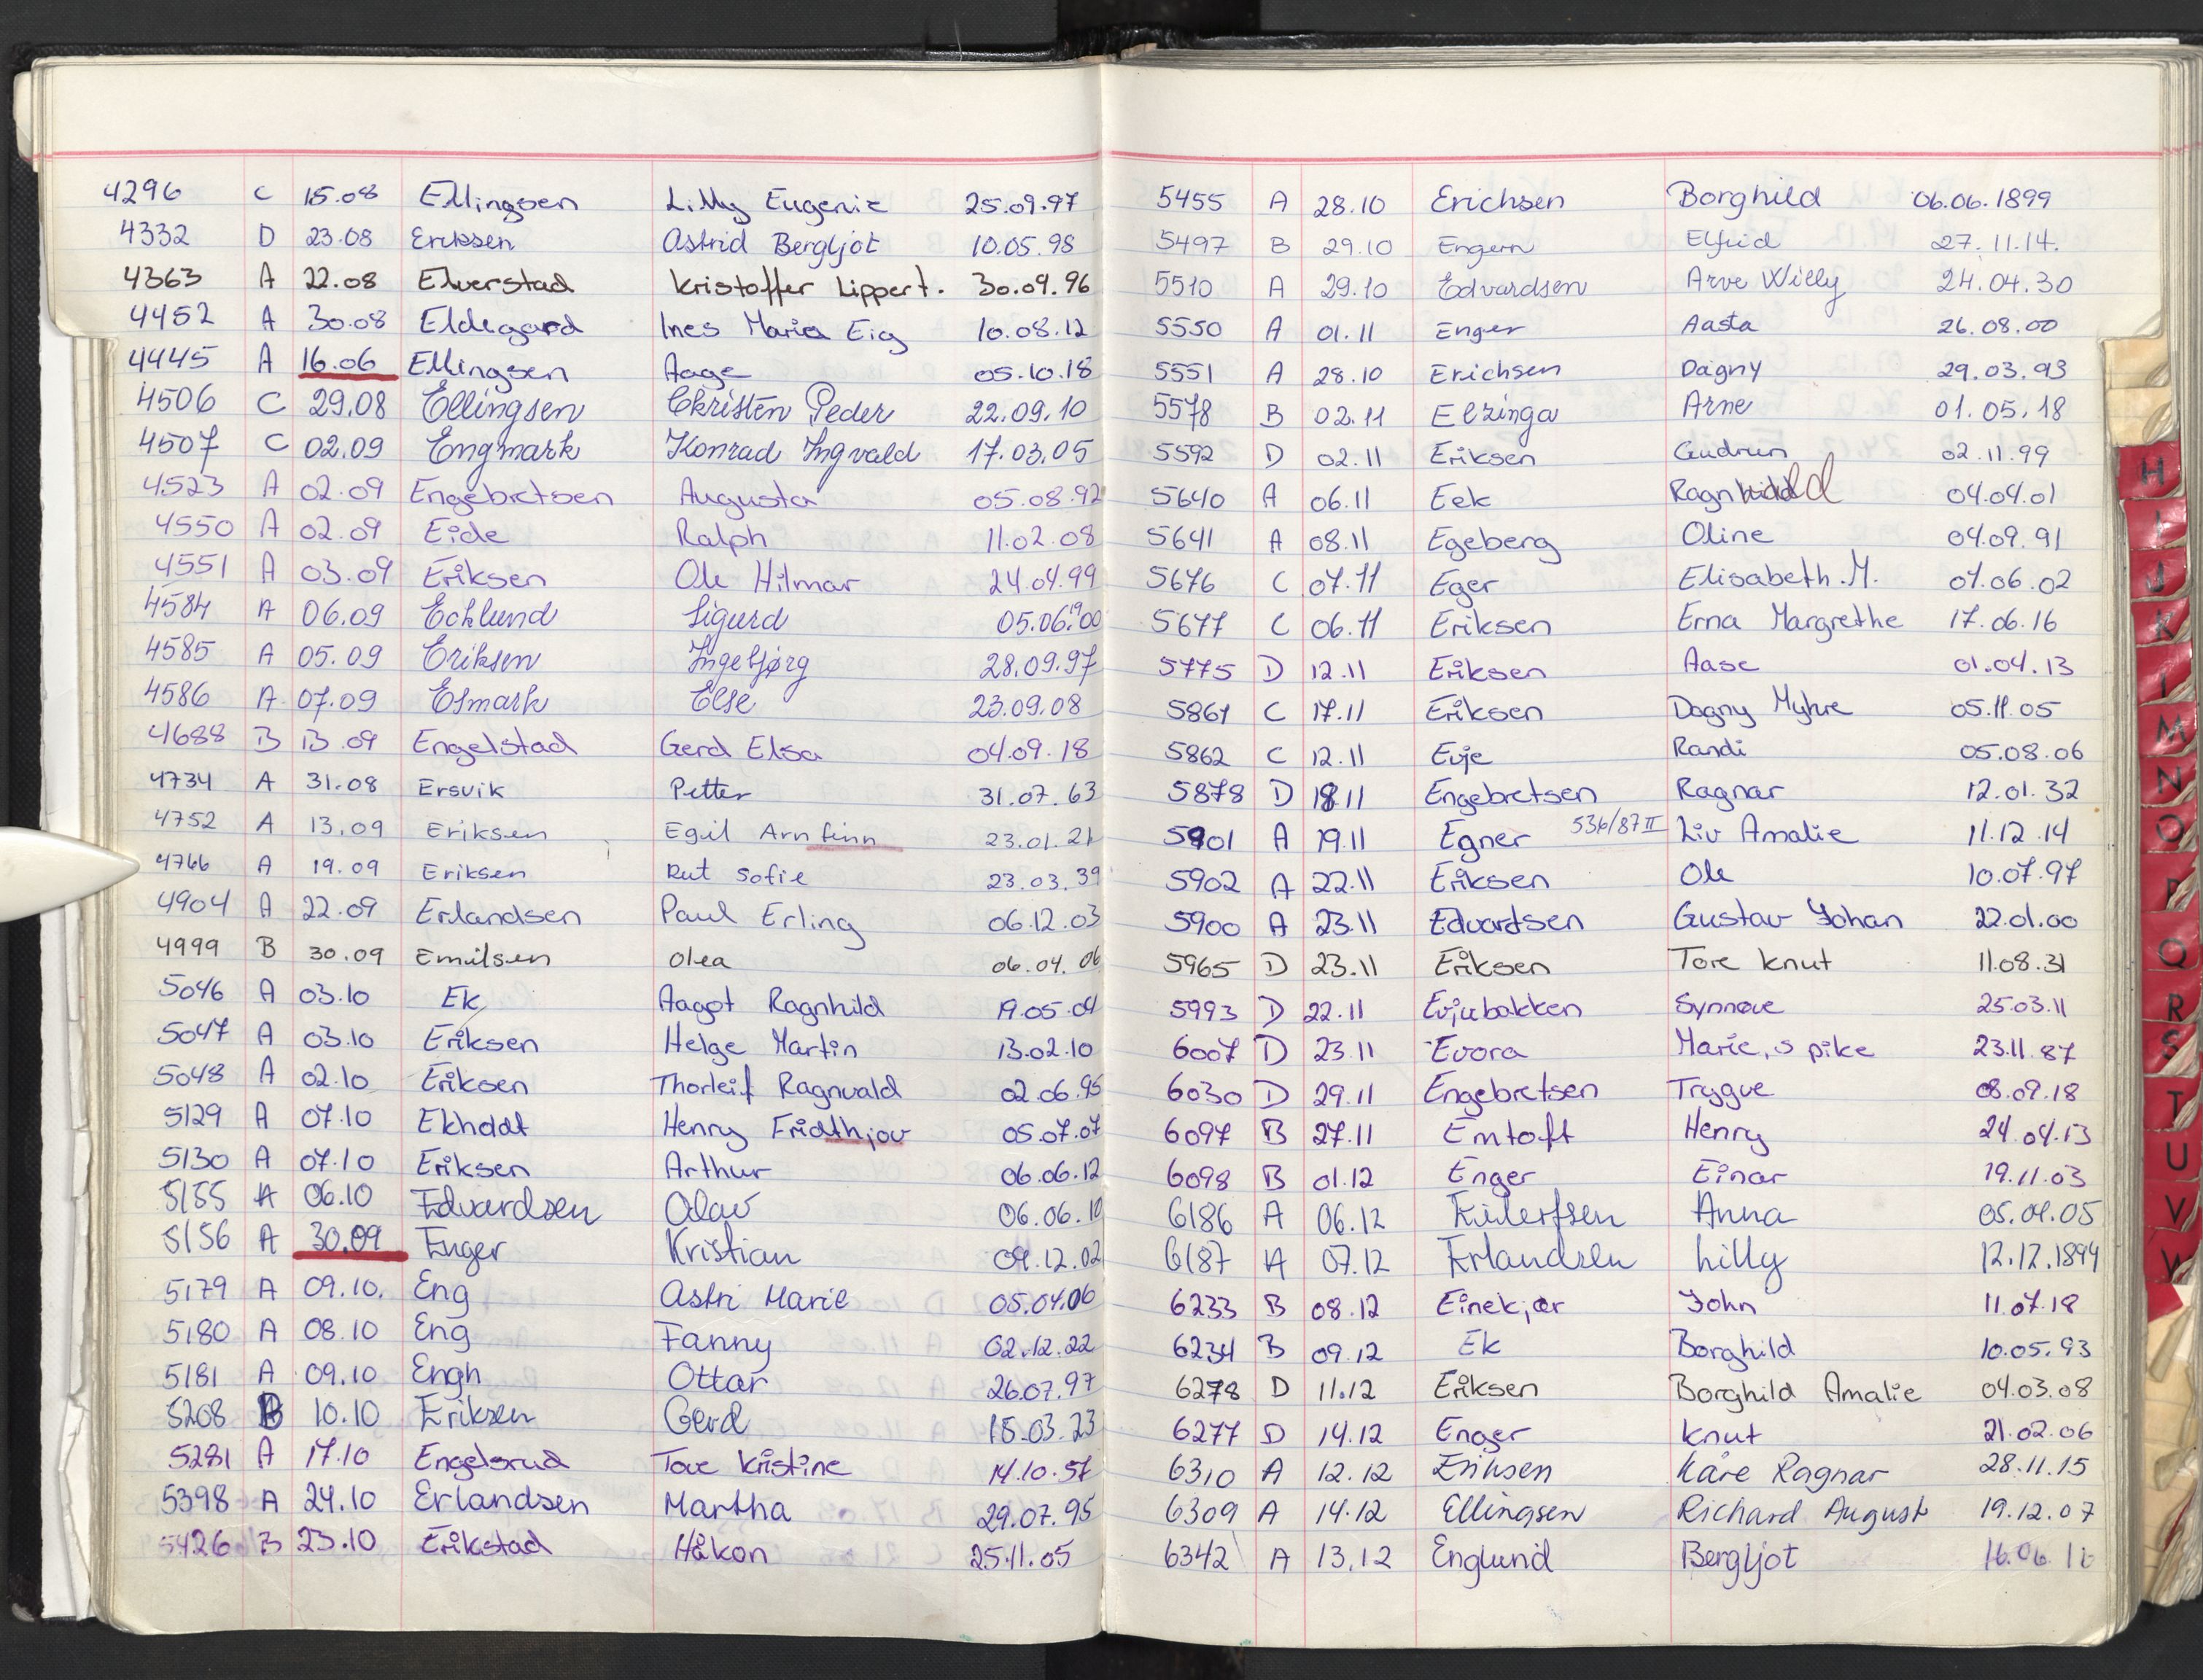 4296 C 15.08 Ellingsen Lilly Eugenie 25.09.97
4332 D 23.08 Eriksen Astrid Bergljot 10.05.98
4363 A 22.08 Elverstad Kristoffer Lippert. 30.09.96
4452 A 30.08 Eldegard Ines Maria Eig 10.08.12
4445 A 16.06 Ellingsen Aage 05.10.18
4506 C 29.08 Ellingsen Christen Peder 22.09.10
4507 C 02.09 Engmark Konrad Ingvald 17.03.05
4523 A 02.09 Engebretsen Augusta 05.08.92
4550 A 02.09 Eide Ralph 11.02.08
4551 A 03.09 Eriksen Ole Hilmar 24.04.99
4584 A 06.09 Ecklund Sigurd 05.06.1900
4585 A 05.09 Eriksen Ingebjørg 28.09.97
4586 A 07.09 Esmark Else 23.09.08
4688 B 13.09 Engelstad Gerd Elisa 04.09.18
4734 A 31.08 Ersvik Petter 31.07.63
4752 A 13.09 Eriksen Egil Arnfinn 23.01.21
4766 A 19.09 Eriksen Rut Sofie 23.03.39
4904 A 22.09 Erlandsen Paul Erling 06.12.03
4999 B 30.09 Emilsen Olea 06.04.06
5046 A 03.10 Ek Aagot Ragnhild 19.05.04
5047 A 03.10 Eriksen Helge Martin 13.02.10
5048 A 02.10 Eriksen Thorleif Ragnvald 02.06.95
5129 A 07.10 Ekholdt Henry Fridthjov 05.07.07
5130 A 07.10 Eriksen Arthur 06.06.12
5155 A 06.10 Edvardsen Olav 06.06.10
5156 A 30.09 Enger Kristian 09.12.02
5179 A 09.10. Eng Astri Marie 05.04.06
5180 A 08.10 Eng Fanny 02.12.22
5181 A 09.10 Engh Ottar 26.07.97
5208 B 10.10 Eriksen Gerd 15.03.23
5281 A 17.10 Engelsrud Tove Kristine 14.10.57
5398 A 24.10 Erlandsen Martha 29.07.95
5426 B 23.10 Erikstad Håkon 25.11.05
5455 A 28.10 Erichsen Borghild 06.06.1899
5497 B 29.10 Engern Elfrid 27.11.14.
5510 A 29.10 Edvardsen Arve Willy 24.04.30
5550 A 01.11 Enger Aasta 26.08.00
5551 A 28.10 Erichsen Dagny 29.03.93
5578 B 02.11 Elzinga Arne 01.05.18
5592 D 02.11 Eriksen Gudrun 02.11.99
5640 A 06.11 Eek Ragnhild 04.04.01
5641 A 08.11 Egeberg Oline 04.09.91
5676 C 07.11 Eger Elisabeth.M. 07.06.02
5677 C 06.11 Eriksen Erna Margrethe 17.06.16
5775 D 12.11 Eriksen Aase 01.04.13
5861 C 17.11 Eriksen Dagny Myhre 05.11.05
5862 C 12.11 Evje Randi 05.08.06
5878 D 18.11 Engebretsen Ragnar 12.01.32
5901 A 19.11 Egner 536/87 II Liv Amalie 11.12.14
5902 A 22.11 Eriksen Ole 10.07.97
5900 A 23.11 Edvardsen Gustav Johan 22.01.00
5965 D 23.11 Eriksen Tore Knut 11.08.31
5993 D 22.11 Evjubakken Synnøve 25.03.11
6007 D 23.11 Evora Marie, s pike 23.11.87
6030 D 29.11 Engebretsen Trygve 08.09.18
6097 B 27.11 Emtoft Henry 24.04.13
6098 B 01.12 Enger Einar 19.11.03
6186 A 06.12 Anna 05.04.05
6187 A 07.12 Erlandsen Lilly 12.12.1894
6233 B 08.12 Einekjær John 11.07.18
6234 B 09.12 Ek Borghild 10.05.93
6278 D 11.12 Eriksen Borghild Amalie 04.03.08
6277 D 14.12 Enger Knut 21.02.06
6310 A 12.12 Eriksen Kåre Ragnar 28.11.15
6309 A 14.12 Ellingsen Richard August 19.12.07
6342 A 13.12 Englund Bergljot
H
I
J
K
L
M
N
O
P
Q
R
S
T
U
V
W